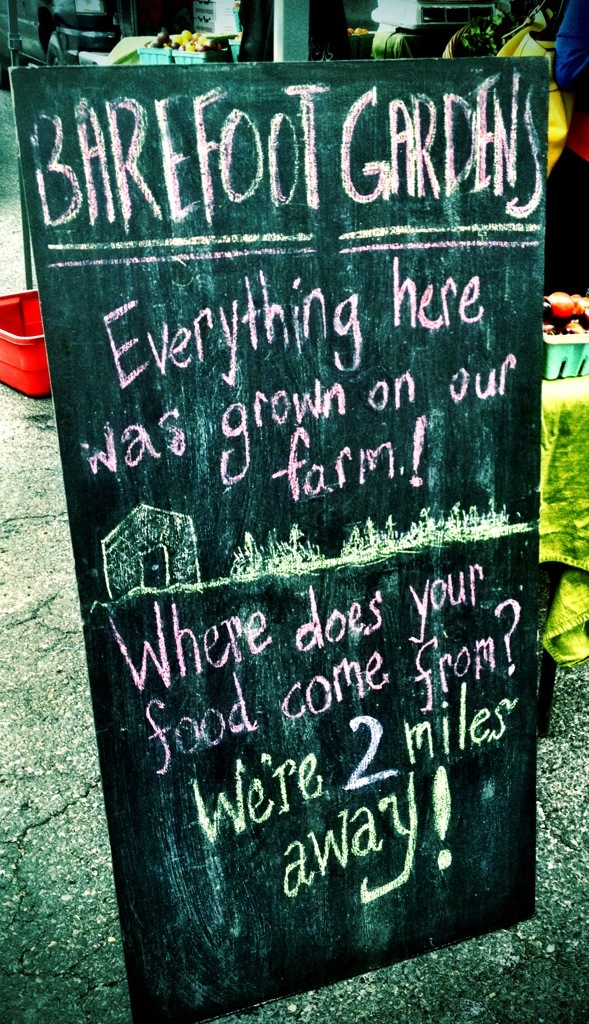 BAREFOOT GARDENS
Everything here
was grown on our
farm.!
Where does your
food come from?
We're 2 miles
away!